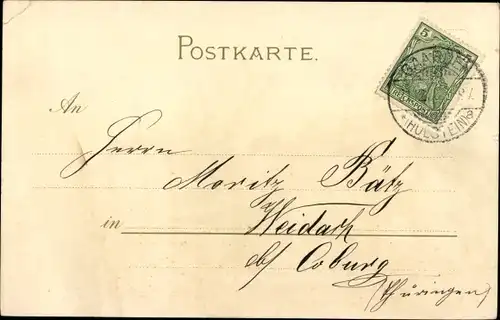 POSTKARTE.
5
REICHSPOST
GAARDEN
*(HOLSTEIN)a
An
Herrn
Moritz Bätz
in Weidach
b/ Coburg
(Thüringen)